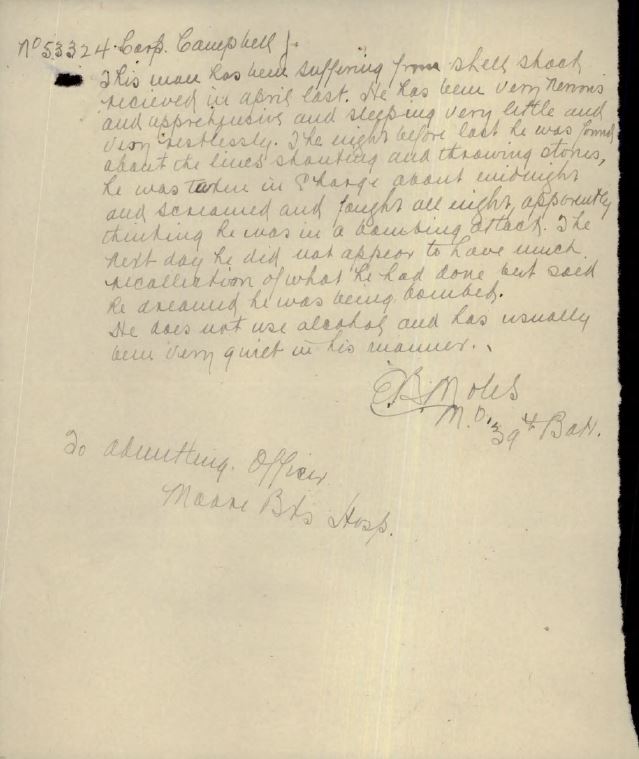 No 53324 Corp. Campbell J.
This man has been suffering from shell shock
recieved in april last. He has been very nervous
and apprehensive and sleeping very little and
very restlessly. The night before last he was found
about the lines shouting and throwing stones,
he was taken in charge about midnight
and screamed and fought all night, apparently
thinking he was in a bombing attack. The
next day he did not appear to have much
recollection of what he had done but said
he dreamed he was being bombed.
He does not use alcohol and has usually
been very quiet in his manner.
E B Moles
M.O. 39th Batt.
To admitting Officer
Moore Bks Hosp.